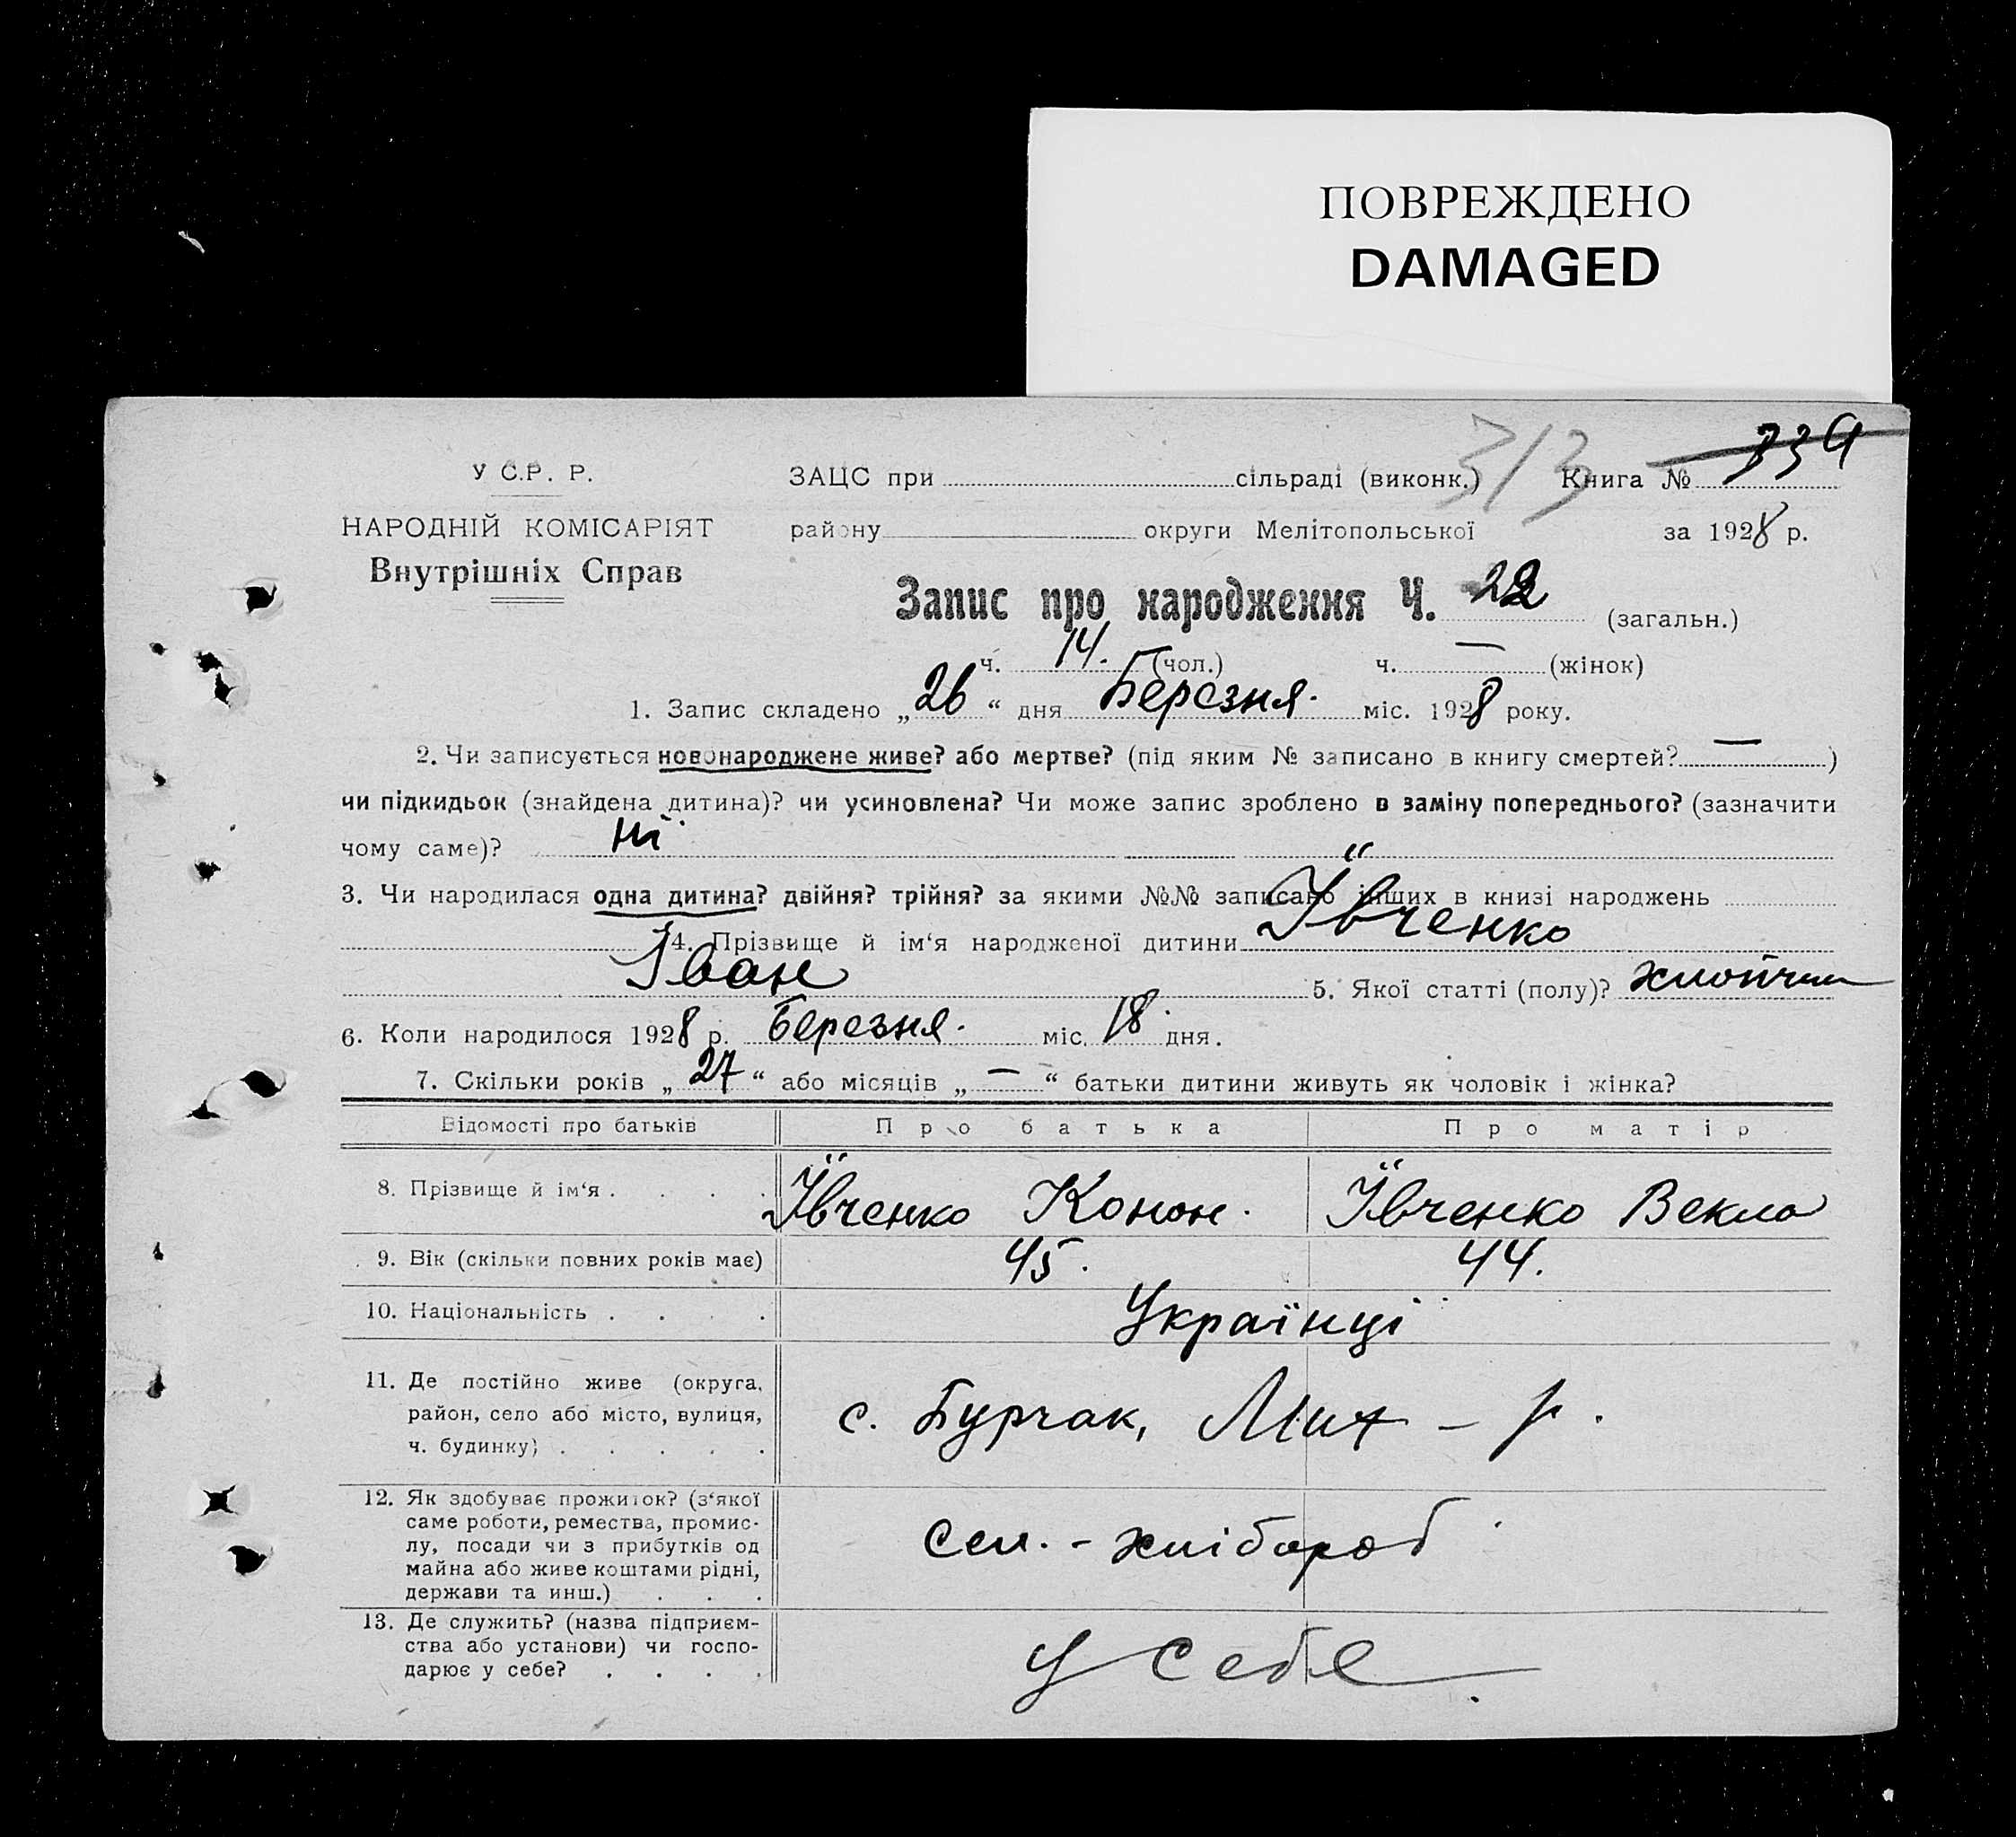 ПОВРЕЖДЕНО
DAMAGED
313 339
У С.Р. Р. ЗАЦС при сільраді (виконк.) Книга №
НАРОДНІЙ КОМІСАРІЯТ району округи Мелітопольської за 1928 р.
Внутрішніх Справ
Запис про народження Ч. 22 (загальн.)
ч. 14. (чол.) ч. — (жінок)
1. Запис складено „26“ дня Березня. міс. 1928 року.
2. Чи записується новонароджене живе? або мертве? (під яким № записано в книгу смертей? — )
чи підкидьок (знайдена дитина)? чи усиновлена? Чи може запис зроблено в заміну попереднього? (зазначити
чому саме)? ні
3. Чи народилася одна дитина? двійня? трійня? за якими №№ записано інших в книзі народжень
4. Прізвище й ім‘я народженої дитини Ївченко
Іван 5. Якої статті (полу)? хлопчик
6. Коли народилося 1928 р. Березня. міс. 18 дня.
7. Скільки років „27“ або місяців „—“ батьки дитини живуть як чоловік і жінка?
Відомості про батьків Про батька Про матір
8. Прізвище й ім‘я . . . . Ївченко Конон. Ївченко Векла
9. Вік (скільки повних років має) 45. 44.
10. Національність . . . . Українці
11. Де постійно живе (округа,
район, село або місто, вулиця, с. Бурчак, Мих – р.
ч. будинку) . . . . .
12. Як здобуває прожиток? (з‘якої
саме роботи, ремества, промис-
лу, посади чи з прибутків од Сел. - хлібороб
майна або живе коштами рідні,
держави та инш.) . . .
13. Де служить? (назва підприєм-
ства або установи) чи госпо- у себе
дарює у себе? . . . .